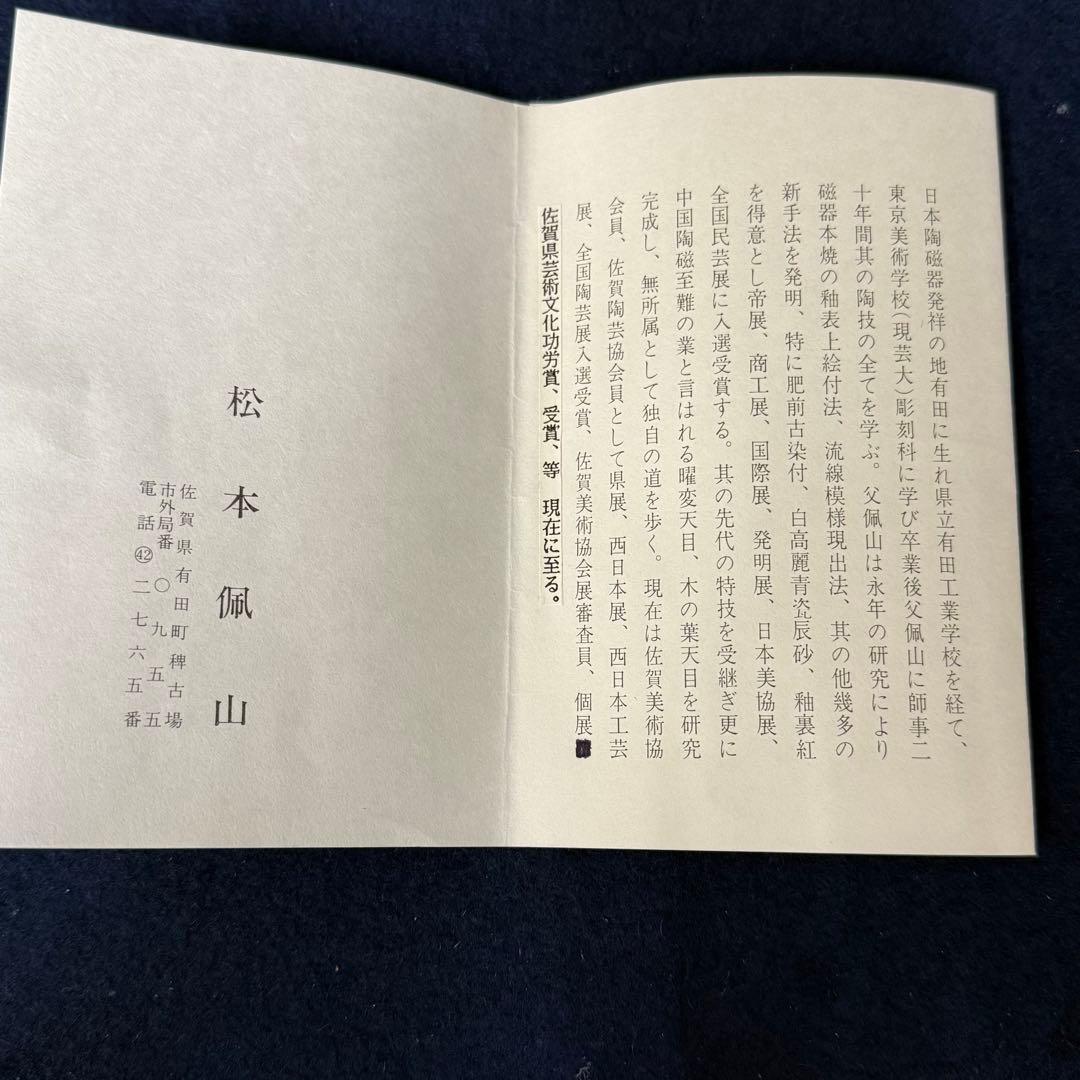 日本陶磁器発祥の地有田に生れ県立有田工業学校を経て、
東京美術学校(現芸大)彫刻科に学び卒業後父佩山に師事二
十年間其の陶技の全てを学ぶ。父佩山は永年の研究により
磁器本焼の釉表上絵付法、流線模様現出法、其の他幾多の
新手法を発明、特に肥前古染付、白高麗青瓷辰砂、釉裏紅
を得意とし帝展、商工展、国際展、発明展、日本美協展、
全国民芸展に入選受賞する。其の先代の特技を受継ぎ更に
中国陶磁至難の業と言はれる曜変天目、木の葉天目を研究
完成し、無所属として独自の道を歩く。現在は佐賀美術協
会員、佐賀陶芸協会員として県展、西日本展、西日本工芸
展、全国陶芸展入選受賞、佐賀美術協会展審査員、個展
佐賀県芸術文化功労賞、受賞、等 現在に至る。
松本佩山
佐賀県有田町稗古場
市外局番〇九五五
電話㊷二七六五番